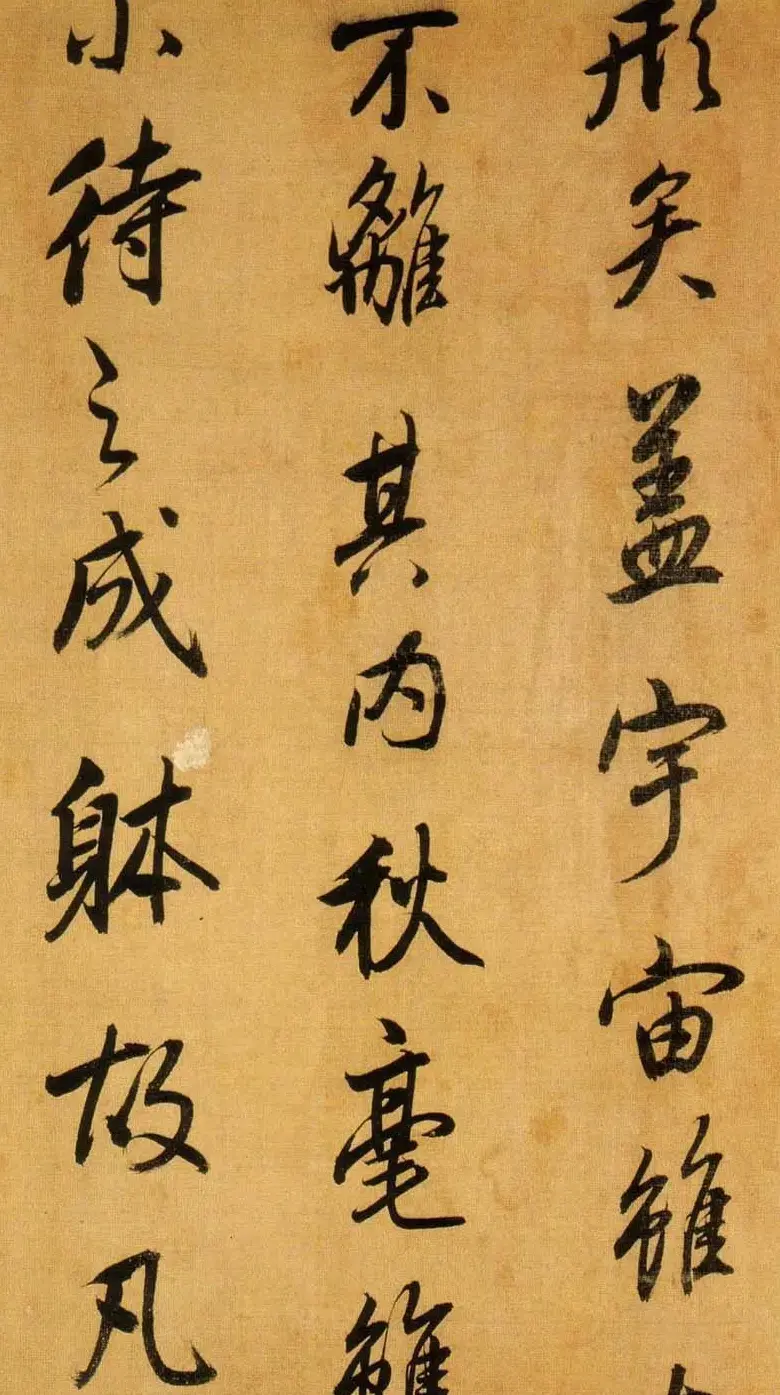 形矣盖宇宙雖
不離其内秋毫雖
小待之成躰故凡